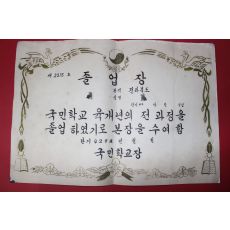 졸업장
본적 전라북도
국민학교 육개년의 전 과정을
졸업 하였기로 본장을 수여 함
단기 년 월 일
국민학교장